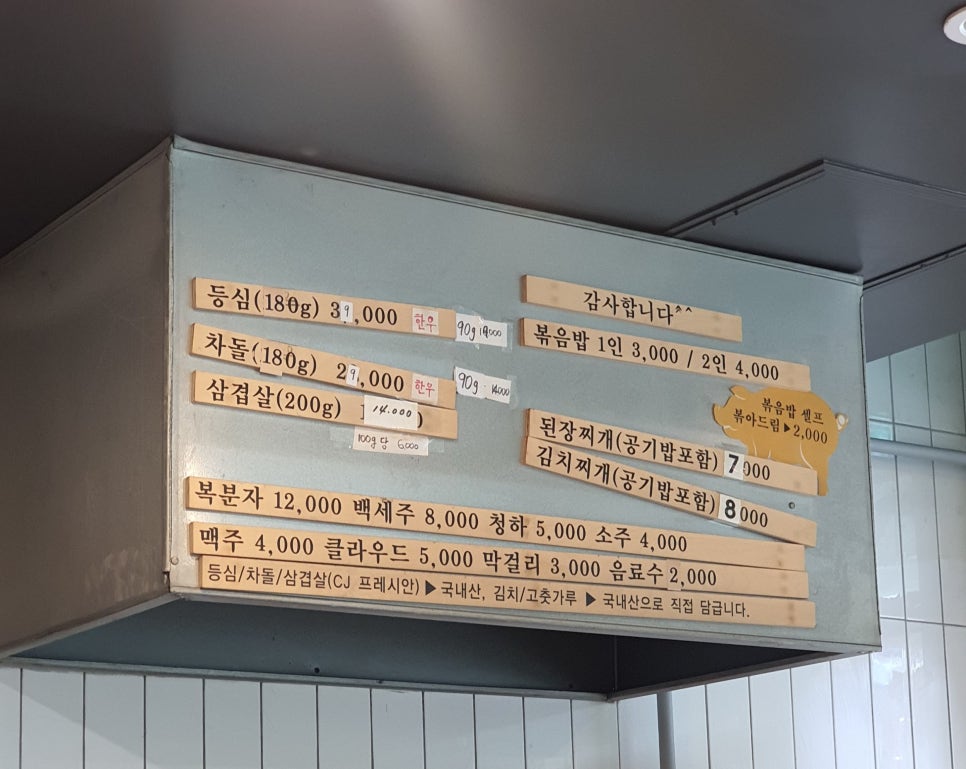 등심(180g) 39,000 한우 90g 19000
차돌(180g) 29,000 한우 90g 14000
삼겹살(200g) 14.000
100g당 6000
감사합니다^^
볶음밥 1인 3,000 / 2인 4,000
볶음밥 셀프
볶아드림▶2,000
된장찌개(공기밥포함) 7000
김치찌개(공기밥포함) 8000
복분자 12,000 백세주 8,000 청하 5,000 소주 4,000
맥주 4,000 클라우드 5,000 막걸리 3,000 음료수 2,000
등심/차돌/삼겹살(CJ 프레시안) ▶ 국내산, 김치/고춧가루 ▶ 국내산으로 직접 담급니다.